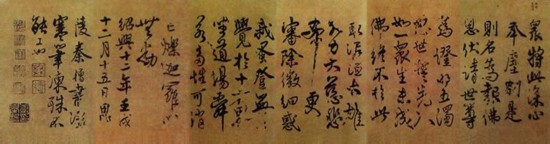 將此深心
奉塵刹是
則名為報佛
恩伏請世尊
為證明五濁
惡世誓先入
如一眾生未成
佛終不於此
取泥洹大雄
大力大慈悲
希更
審除微細惑
令我早登無上
覺於十方界
坐道場舜
若多性可消
亡爍迦羅心
無少動
紹興十二年壬戌
十二月十五日思
陵秦檜書
寒筆凍殊不
能工